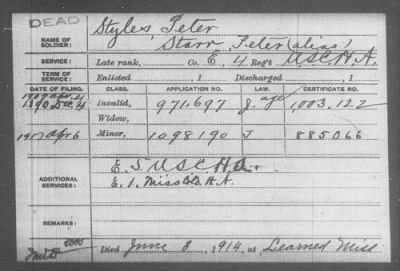 DEAD
NAME OF SOLDIER: Styles, Peter
Starr, Peter (alias)
SERVICE: Late rank, Co. E, 4 Reg't U.S.C.H.A.
TERM OF SERVICE: Enlisted , 1 Discharged , 1
DATE OF FILING. CLASS. APPLICATION NO. LAW. CERTIFICATE NO.
1890 Dec. 4 Invalid, 971.697 age 1,003.122
Widow,
1917 Apr 6 Minor, 1098190 J 885066
ADDITIONAL SERVICES: E. 5. U.S.C.H.A.
E. 1. Miss Cld. H.A.
REMARKS:
Died June 3, 1914, at Learned Miss